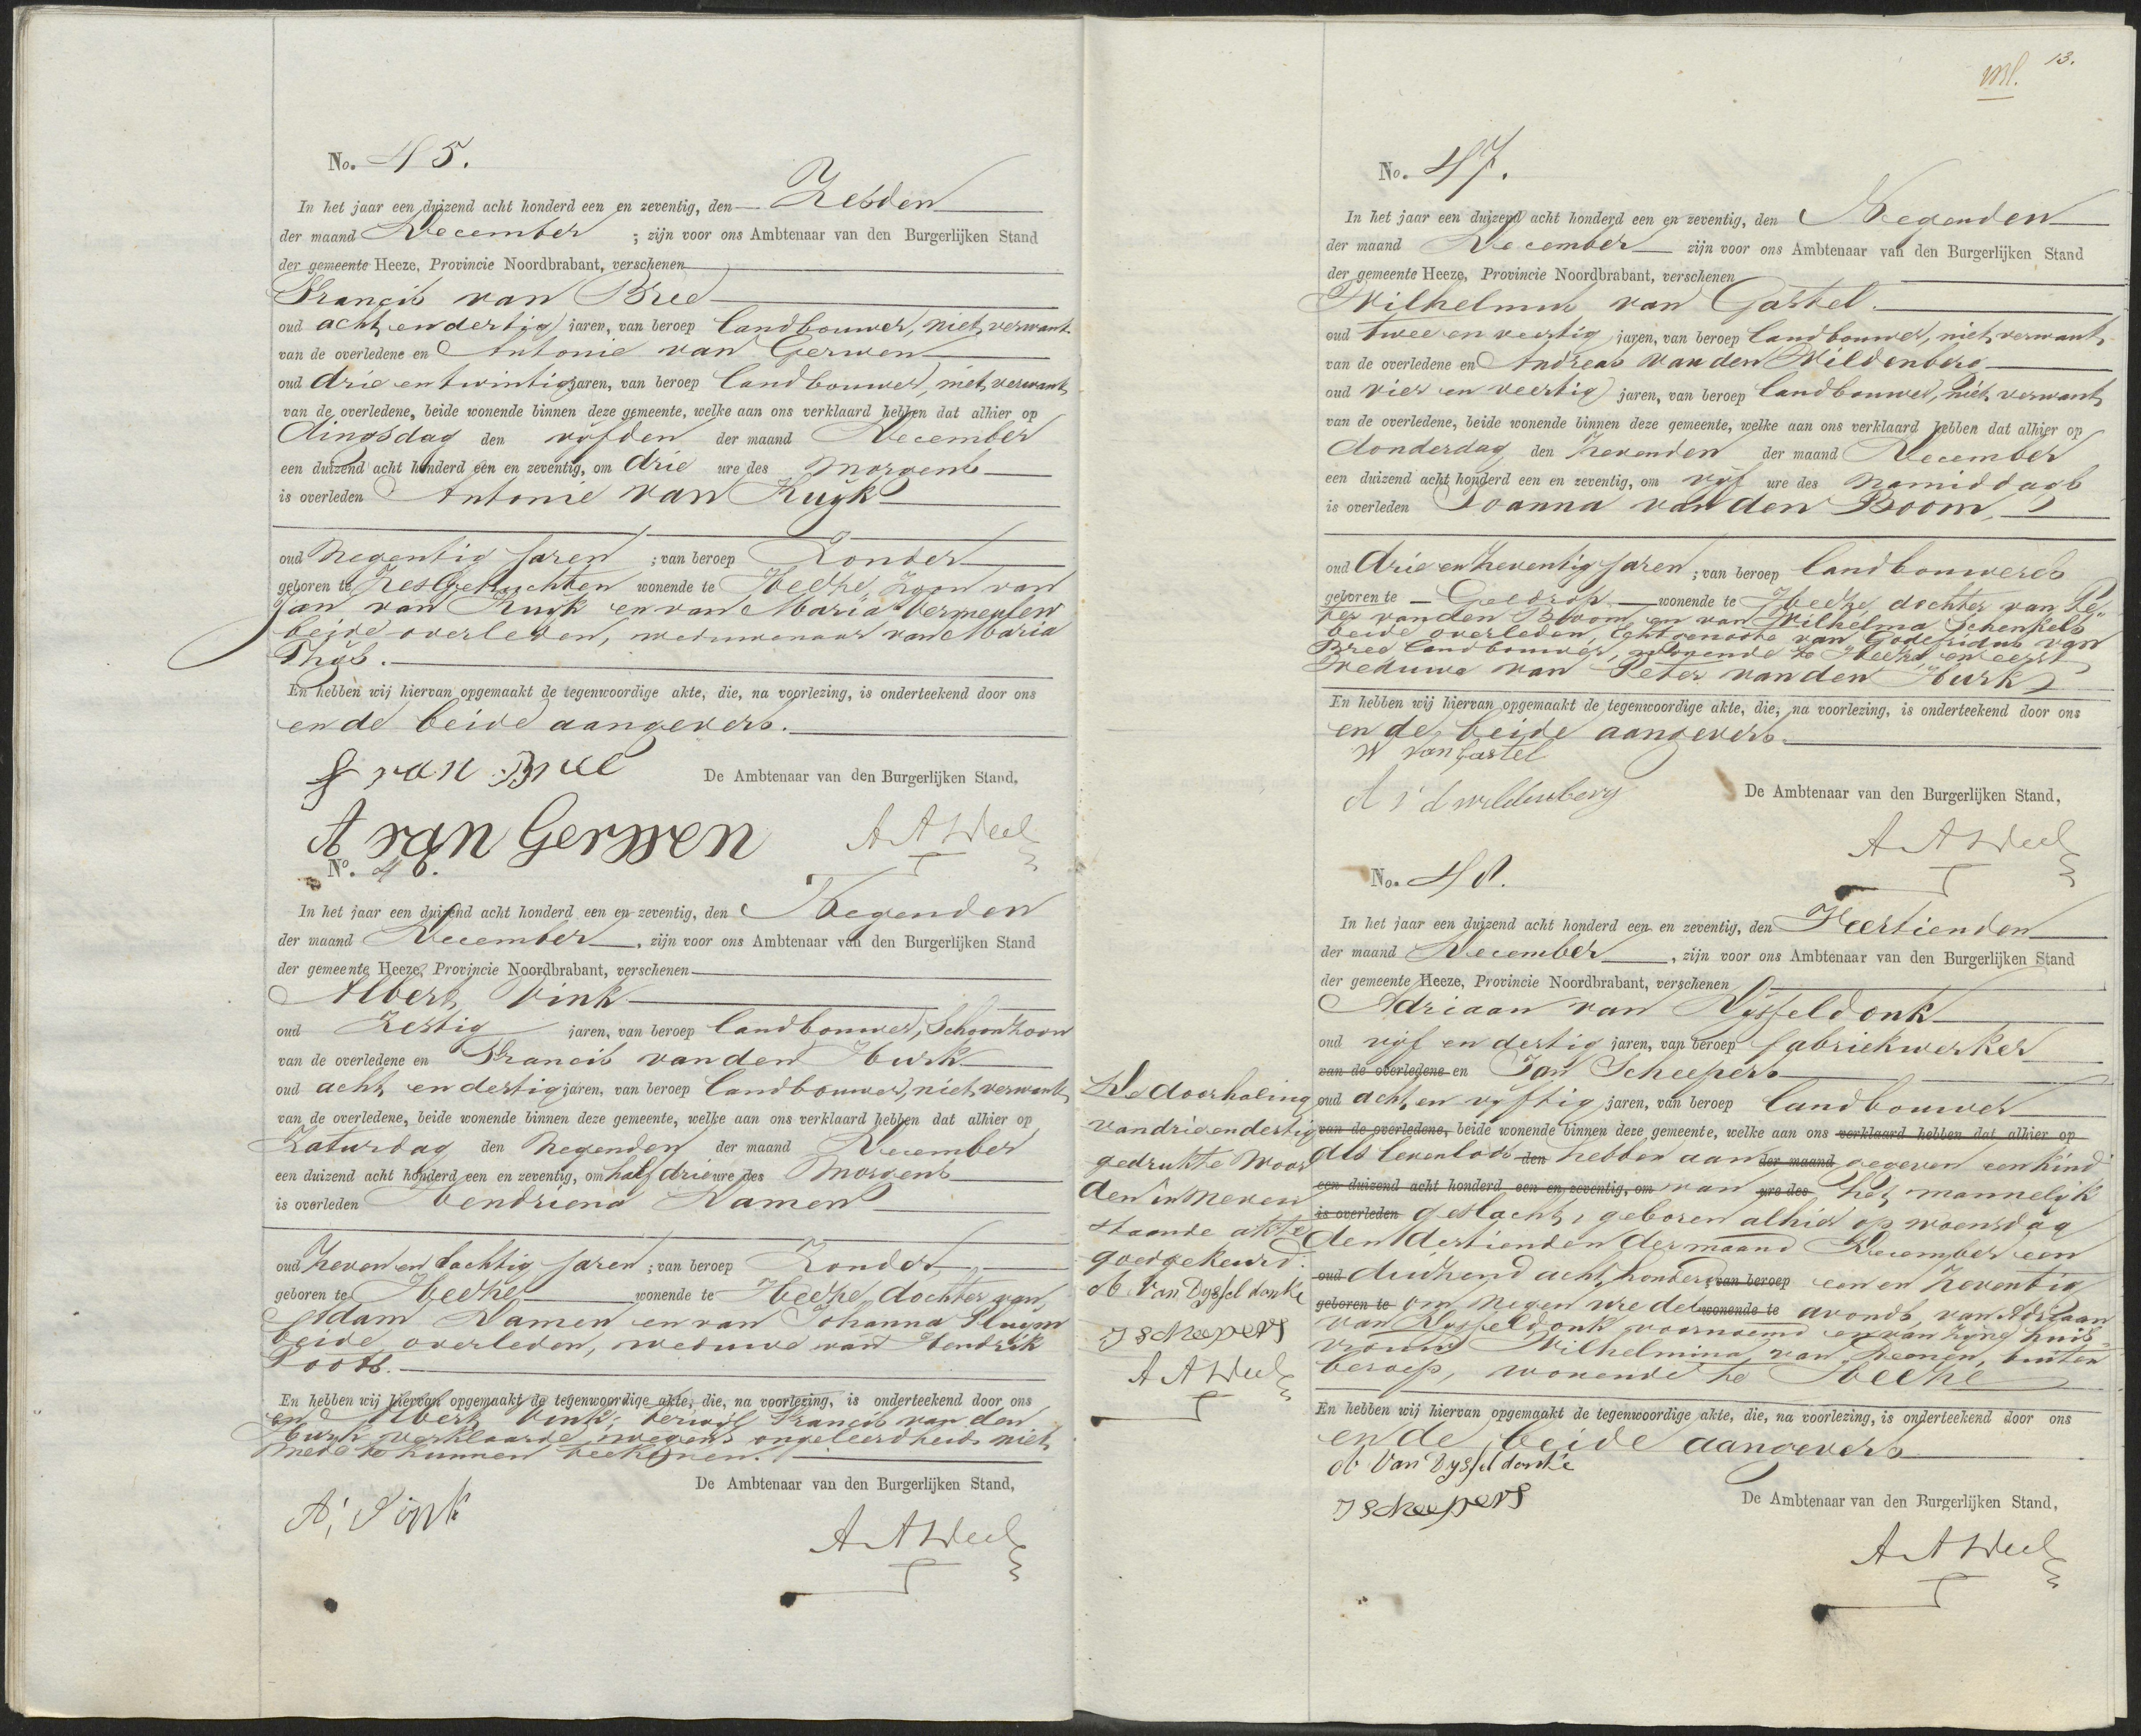 No. 45.
In het jaar een duizend acht honderd een en zeventig, den Zesden
der maand December ; zijn voor ons Ambtenaar van den Burgerlijken Stand
der gemeente Heeze, Provincie Noordbrabant, verschenen
Francis van Bree
oud acht en dertig jaren, van beroep landbouwer, niet verwant
van de overledene en Antonie van Gerwen
oud drie en twintig jaren, van beroep landbouwer, niet verwant
van de overledene, beide wonende binnen deze gemeente, welke aan ons verklaard hebben dat alhier op
dingsdag den vijfden der maand December
een duizend acht honderd een en zeventig, om drie ure des morgens
is overleden Antonie van Kuijk
oud Negentig jaren ; van beroep Zonder
geboren te Zesgehuchten wonende te Heeze, Zoon van
Jan van Kuijk en van Maria Vermeulen
beide overleden, weduwenaar van Maria
Thijs.
En hebben wij hiervan opgemaakt de tegenwoordige akte, die, na voorlezing, is onderteekend door ons
en de beide aangevers.
F van Bree
De Ambtenaar van den Burgerlijken Stand,
A van Gerwen
A A Weel
No. 46.
In het jaar een duizend acht honderd een en zeventig, den Negenden
der maand December , zijn voor ons Ambtenaar van den Burgerlijken Stand
der gemeente Heeze, Provincie Noordbrabant, verschenen
Albert Vink
oud Zestig jaren, van beroep landbouwer, Schoonzoon
van de overledene en Francis van den Hurk
oud acht en dertig jaren, van beroep landbouwer, niet verwant
van de overledene, beide wonende binnen deze gemeente, welke aan ons verklaard hebben dat alhier op
Zaturdag den Negenden der maand December
een duizend acht honderd een en zeventig, om half drie ure des Morgens
is overleden Hendriena Damen
oud Zeven en tachtig jaren ; van beroep Zonder
geboren te Heeze wonende te Heeze, dochter van
Adam Damen en van Johanna Pluym
beide overleden, weduwe van Hendrik
Poots.
En hebben wij hiervan opgemaakt de tegenwoordige akte, die, na voorlezing, is onderteekend door ons
en Albert Vink; terwijl Francis van den
Hurk verklaarde wegens ongeleerdheid niet
mede te kunnen teekenen.
De Ambtenaar van den Burgerlijken Stand,
A; Vink
A A Weel
13.
No. 47.
In het jaar een duizend acht honderd een en zeventig, den Negenden
der maand December zijn voor ons Ambtenaar van den Burgerlijken Stand
der gemeente Heeze, Provincie Noordbrabant, verschenen
Wilhelmus van Gastel.
oud twee en veertig jaren, van beroep landbouwer, niet verwant
van de overledene en Andreas van den Wildenberg
oud vier en veertig jaren, van beroep landbouwer, niet verwant
van de overledene, beide wonende binnen deze gemeente, welke aan ons verklaard hebben dat alhier op
donderdag den Zevenden der maand December
een duizend acht honderd een en zeventig, om vijf ure des Namiddags
is overleden Joanna van den Boom,
oud drie en zeventig jaren ; van beroep landbouweres
geboren te Geldrop wonende te Heeze, dochter van Pe"
ter van den Boom en van Wilhelma Schenkels
beide overleden, Echtgenoote van Godefridus van
Bree landbouwer, wonende te Heeze en eerst
weduwe van Peter van den Hurk
En hebben wij hiervan opgemaakt de tegenwoordige akte, die, na voorlezing, is onderteekend door ons
en de beide aangevers.
W van Gastel
A v d wildenberg
De Ambtenaar van den Burgerlijken Stand,
A A Weel
No. 48.
In het jaar een duizend acht honderd een en zeventig, den Veertienden
der maand December , zijn voor ons Ambtenaar van den Burgerlijken Stand
der gemeente Heeze, Provincie Noordbrabant, verschenen
Adriaan van Dijsseldonk
oud vijf en dertig jaren, van beroep fabriekwerker
van de overledene en Jan Scheepers
oud acht en vijftig jaren, van beroep landbouwer
van de overledene, beide wonende binnen deze gemeente, welke aan ons verklaard hebben dat alhier op
als levenloos den hebben aan der maand gegeven een kind
een duizend acht honderd een en zeventig, om van ure des het mannelijk
is overleden geslacht, geboren alhier op woensdag
den dertienden der maand December een
oud duizend acht honderd van beroep een en zeventig
geboren te om negen ure des wonende te avonds, van Adriaan
van Dijsseldonk voornoemd en van zijne huis"
vrouw Wilhelmina van Deenen, buiten
beroep, wonende te Heeze
En hebben wij hiervan opgemaakt de tegenwoordige akte, die, na voorlezing, is onderteekend door ons
en de beide aangevers
Van Dysseldonk
J Scheepers
De Ambtenaar van den Burgerlijken Stand,
A A Weel
De doorhaling
van drie en dertig
gedrukte woor
den in neven
staande akte
goedgekeurd.
Van Dysseldonk
J Scheepers
A A Weel